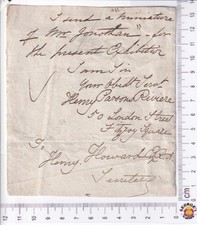 I send a miniature
of "Mr Jonathan" - for
the present Exhibition
I am Sir
Your Obdt Servt
Henry Parsons Riviere
50 London Street
Fitzroy Square
To
Henry Howard Esq R.A.
Secretary